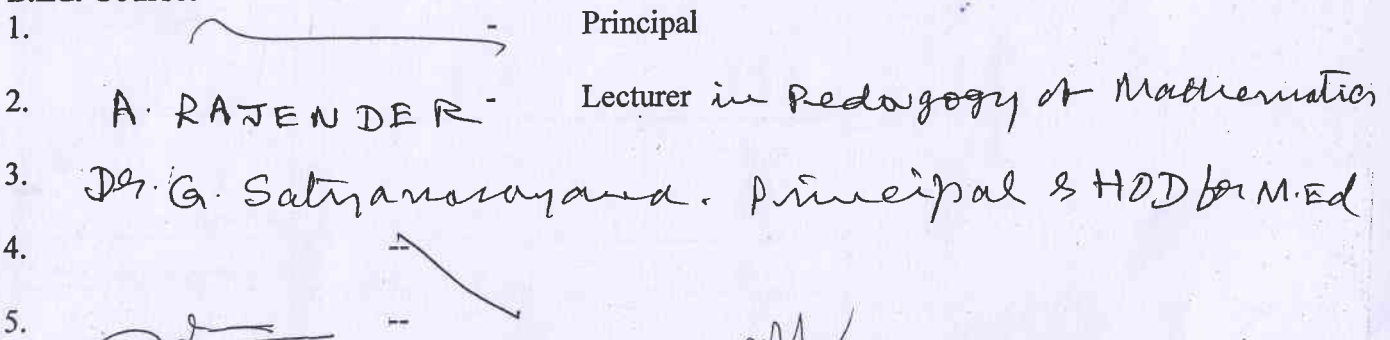 1. - Principal
2. A. RAJENDER - Lecturer in Pedagogy of Mathematics
3. Dr. G. Satyanarayana. Principal & HOD for M.Ed
4. --
5. --